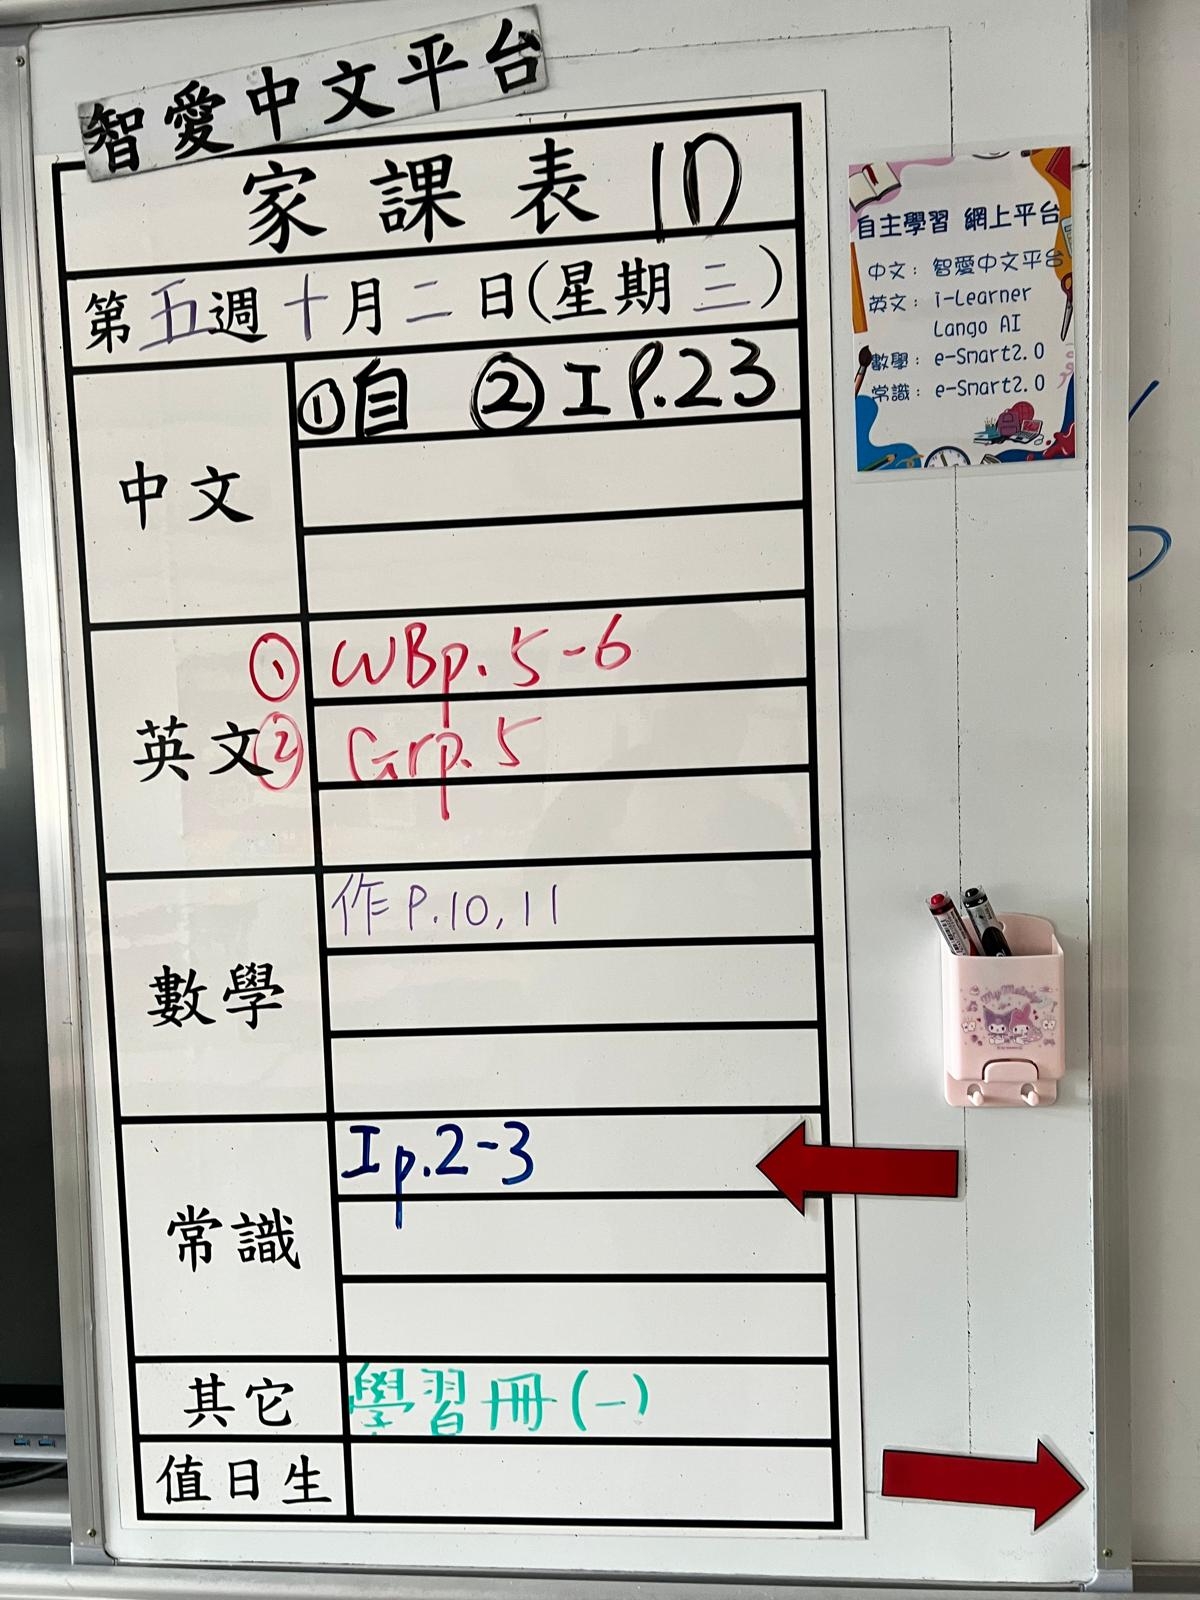 智愛中文平台
家課表 1D
第五週十月二日(星期三)
中文
①自 ②I P.23
英文
① WBp.5-6
② Grp.5
數學
作 P.10,11
常識
I p.2-3
其它
學習冊(一)
值日生
自主學習 網上平台
中文：智愛中文平台
英文：i-Learner
Lango AI
數學：e-Smart2.0
常識：e-Smart2.0
My Melody